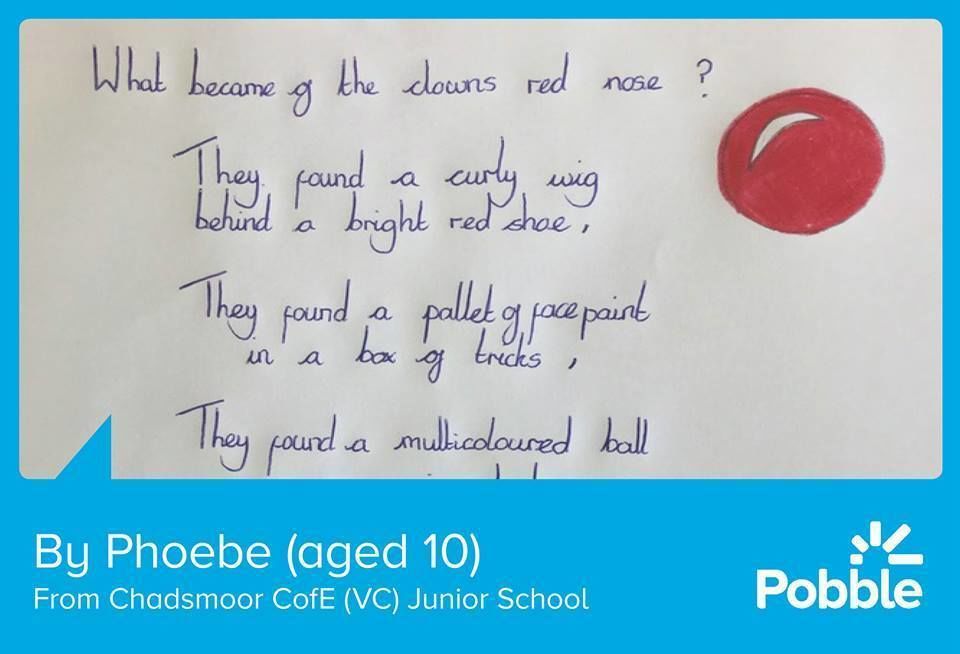 What became of the clowns red nose ?
They found a curly wig
behind a bright red shoe,
They found a pallet of face paint
in a box of tricks ,
They found a multicoloured ball
By Phoebe (aged 10)
From Chadsmoor CofE (VC) Junior School
Pobble